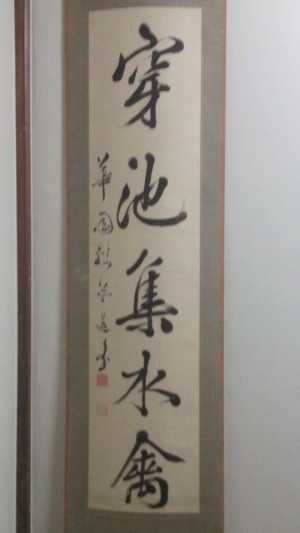 穿池集水禽
華園